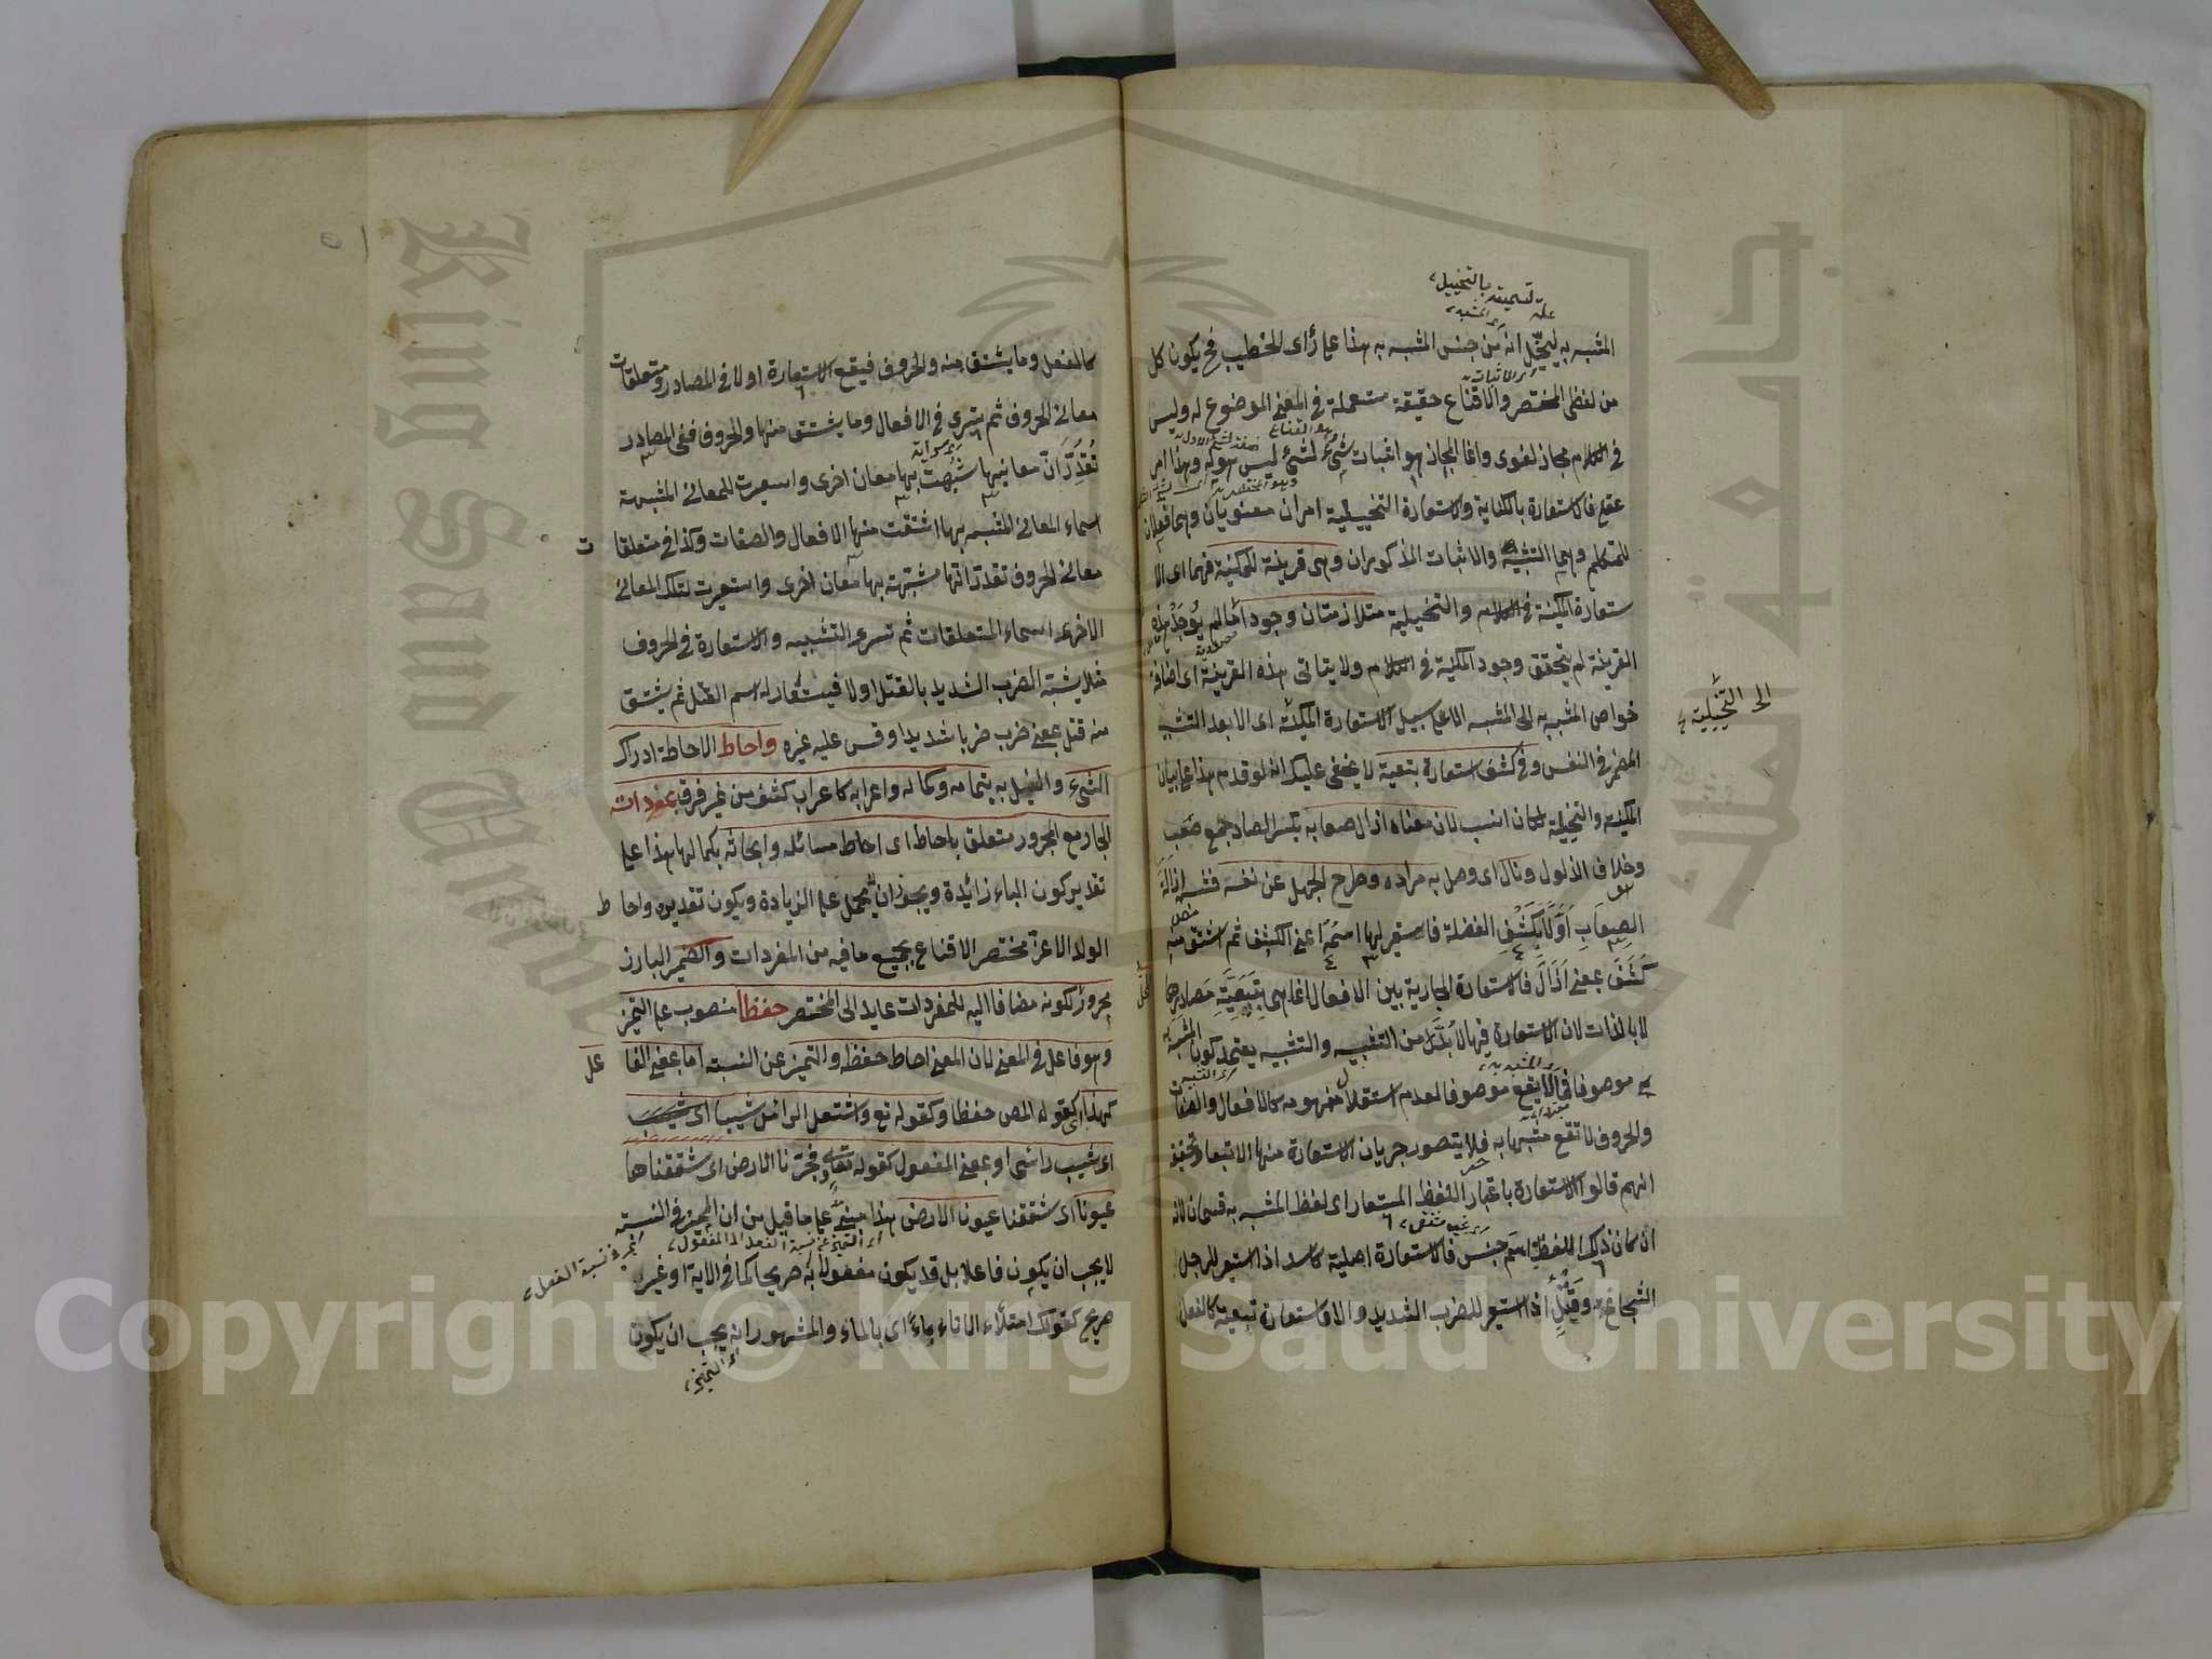 علة تسميته بالتخييل
اى المشبه
المشبه به ليخيّل انه من جنس المشبه به هذا على رأى الخطيب فح يكون كل
من لفظى المختصر والاقناع حقيقة مستعملة فى المعنى الموضوع له وليس
فى الكلام مجاز لغوى وانما المجاز هو اثبات شئ لشئ ليس هو له وهذا امر
عقلى فالاستعارة بالكناية والاستعارة التخييلية امران معنويان وهما فعلان
للمتكلم وهما التشبيه والاثبات المذكوران وهى قرينة للمكنية فهما اى الا
ستعارة المكنية فى الكلام والتخييلية متلازمتان وجودا مالم يُوجَدْ هذه
القرينة لم يتحقق وجود المكنية فى الكلام ولا يتاتى هذه القرينة اى اضافة
خواص المشبه به الى المشبه الا على سبيل الاستعارة المكنية اى الا بعد التشبيه
الى التخييلية
المضمر فى النفس وفى كشف استعارة تبعية لا يخفى عليك انه لو قدم هذا على بيان
المكنية والتخييلية لكان انسب لان معناه ازال صعابه بكسر الصاد جمع صعب
وخلاف الذلول ونال اى وصل به مراده وطرح الجهل عن نفسه فشبه ازالَةَ
الصِعَابِ أوّلًا بِكَشْفِ الفضلة فاستعير لها اسمه اعنى الكشف ثم اشتق منه
كَشَفَ بمعنى اَزَالَ فالاستعارة الجارية بين الافعال انما هى بِتَبَعِيَّةِ مَصادِرِها
لا بالذات لان الاستعارة فيها لا بُدَّ من التشبيه والتشبيه يعتمد كون المشبه
به موصوفا فما لا يقع موصوفا لعدم استقلال مفهومه كالافعال والصفات
والحروف لا تقع مشبها به فلا يتصور جريان الاستعارة منها الا تبعا وتحقيقه
انهم قالوا الاستعارة باعتبار اللفظ المستعار اى لفظ المشبه به قسمان لانه
ان كان ذلك اللفظ اسم جنس فالاستعارة اصلية كاسد اذا استعير للرجل
الشجاع وقَتْلٍ اذا استعير للضرب الشديد والا فاستعارة تبعية كالفعل
كالفعل وما يشتق منه والحروف فيقع الاستعارة اولا فى المصادر ومتعلقات
معانى الحروف ثم يسرى فى الافعال وما يشتق منها والحروف ففى المصادر
تُقَدِّرَ اَنّ معانيها شُبّهت بها معان اخرى واستعيرت للمعانى المشبهة
اسماء المعانى المشبه بها اشتقت منها الافعال والصفات وكذا فى متعلقات
معانى الحروف تقدر انها مشبهة بها معان اخرى واستعيرت لتلك المعانى
الاخرى اسماء المتعلقات ثم تسرى التشبيه والاستعارة فى الحروف
مثلا يشبّه الضرب الشديد بالقتل اولا فيستعار له اسم القتل ثم يشتق
منه قتل بمعنى ضرب ضربا شديدا وقس عليه غيره واحاط الاحاطة ادراك
الشىء والنيل به بتمامه وكماله واعرابه كاعراب كشف من غير فرق بمفردات
الجار مع المجرور متعلق باحاط اى احاط مسائله وابحاثه بكمالها هذا على
تقدير كون الباء زائدة ويجوز ان يحمل على الزيادة ويكون تقديره واحاط
الولد الاعز مختصر الاقناع بجميع ما فيه من المفردات والضمير البارز
مجرور لكونه مضافا اليه للمفردات عايد الى المختصر حفظا منصوب على التميز
وهو فاعل فى المعنى لان المعنى احاط حفظه والتميز عن النسبة اما بمعنى الفاعل
كهذا اى كقوله المص حفظا وكقوله تع واشتعل الراس شيبا اى
اى شيب راسى او بمعنى المفعول كقوله تعالى وفجرنا الارض اى شققناها
عيونا اى شققنا عيون الارض هذا مبنىٌّ على ما قيل من ان المميز فى النسبة
اى التميز عن نسبة الفعل الى المفعول
لا يجب ان يكون فاعلا بل قد يكون مفعولا به صريحا كما فى الاية او غير
صريح كقولك امتلاء الاناء ماءً اى بالماء والمشهور انه يجب ان يكون
اى التميز
Copyright © King Saud University
جامعة الملك
King Saud